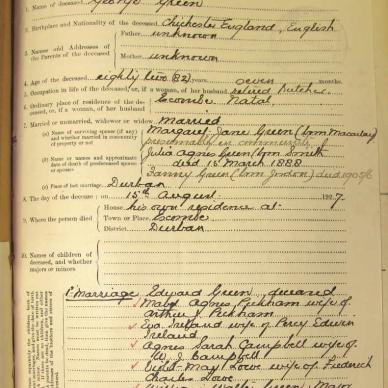 1. Name of deceased George Green
2. Birthplace and Nationality of the deceased Chichester England, English
Father unknown
3. Names and Addresses of the Parents of the deceased
Mother unknown
4. Age of the deceased eighty two (82) years seven months.
5. Occupation in life of the deceased, or, if a woman, of her husband retired Butcher
6. Ordinary place of residence of the deceased, or, if a woman, of her husband Escombe Natal
7. Married or unmarried, widower or widow Married
(a) Name of surviving spouse (if any) and whether married in community of property or not Margaret Jane Green (born Macaulay)
presumably in community
(b) Name or names and approximate date of death of predeceased spouse or spouses Julia Agnes Green (born Smith
died 15 March 1888
Fanny Green (born Jordon) died 1905/6
(c) Place of last marriage Durban
8. The day of the decease: on 15th August 1927
House his own residence at
9. Where the person died Town or Place Escombe
District Durban
10. Names of children of deceased, and whether majors or minors
1st Marriage Edward Green, deceased
Mabel Agnes Peckham wife of
Arthur J. Peckham
Eva Ireland wife of Percy Edwin
Ireland
Agnes Sarah Campbell wife of
W. J. Campbell
May Lowe wife of Frederick
Charles Lowe
Green, Major